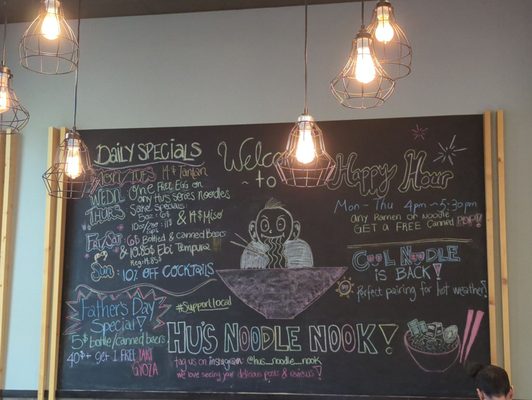 Daily Specials
Mon/Tues 14 Tantan
Wed One Free Egg on
any Hu's series Noodles
Thurs Sake Specials
& 14 Miso
Fri/Sat 6$ Bottled & Canned Beers
& 10.85$ Ebi Tempura
Sun 10% off Cocktails
Father's Day
Special!
5$ bottle/canned Beer
40$+ get 1 free
Gyoza
Welcome
to
#Support local
Hu's Noodle Nook!
Tag us on Instagram @hus_noodle_nook
we love seeing your delicious posts & reviews!
Happy Hour
Mon - Thu 4pm - 5:30pm
any Ramen or Noodle
Get a free canned Pop!
Cool Noodle
is Back!
Perfect pairing for hot weather!